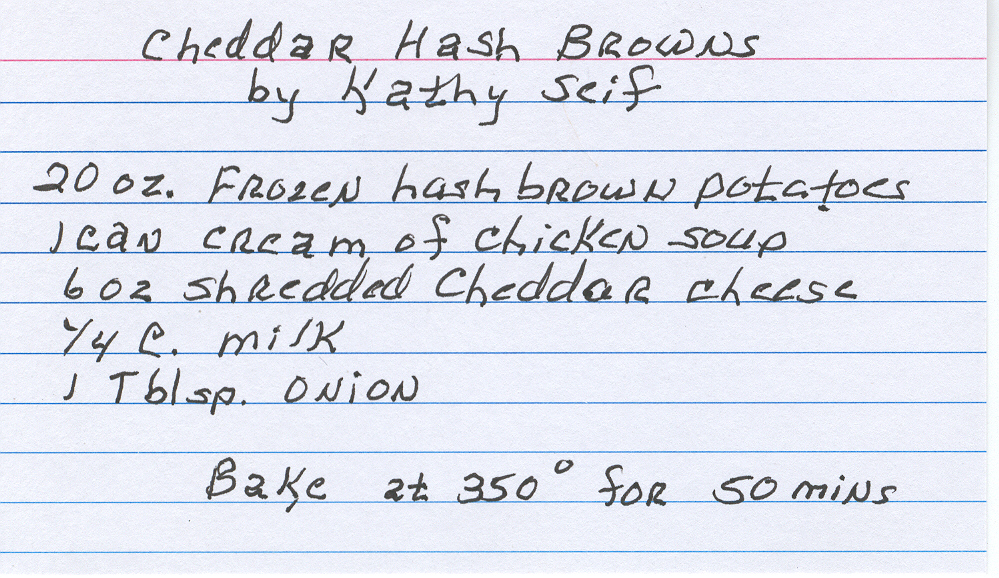 Cheddar Hash Browns
by Kathy Seif
20 oz. Frozen hash brown potatoes
1 can cream of chicken soup
6 oz shredded Cheddar cheese
1/4 C. milk
1 Tblsp. onion
Bake at 350° for 50 mins